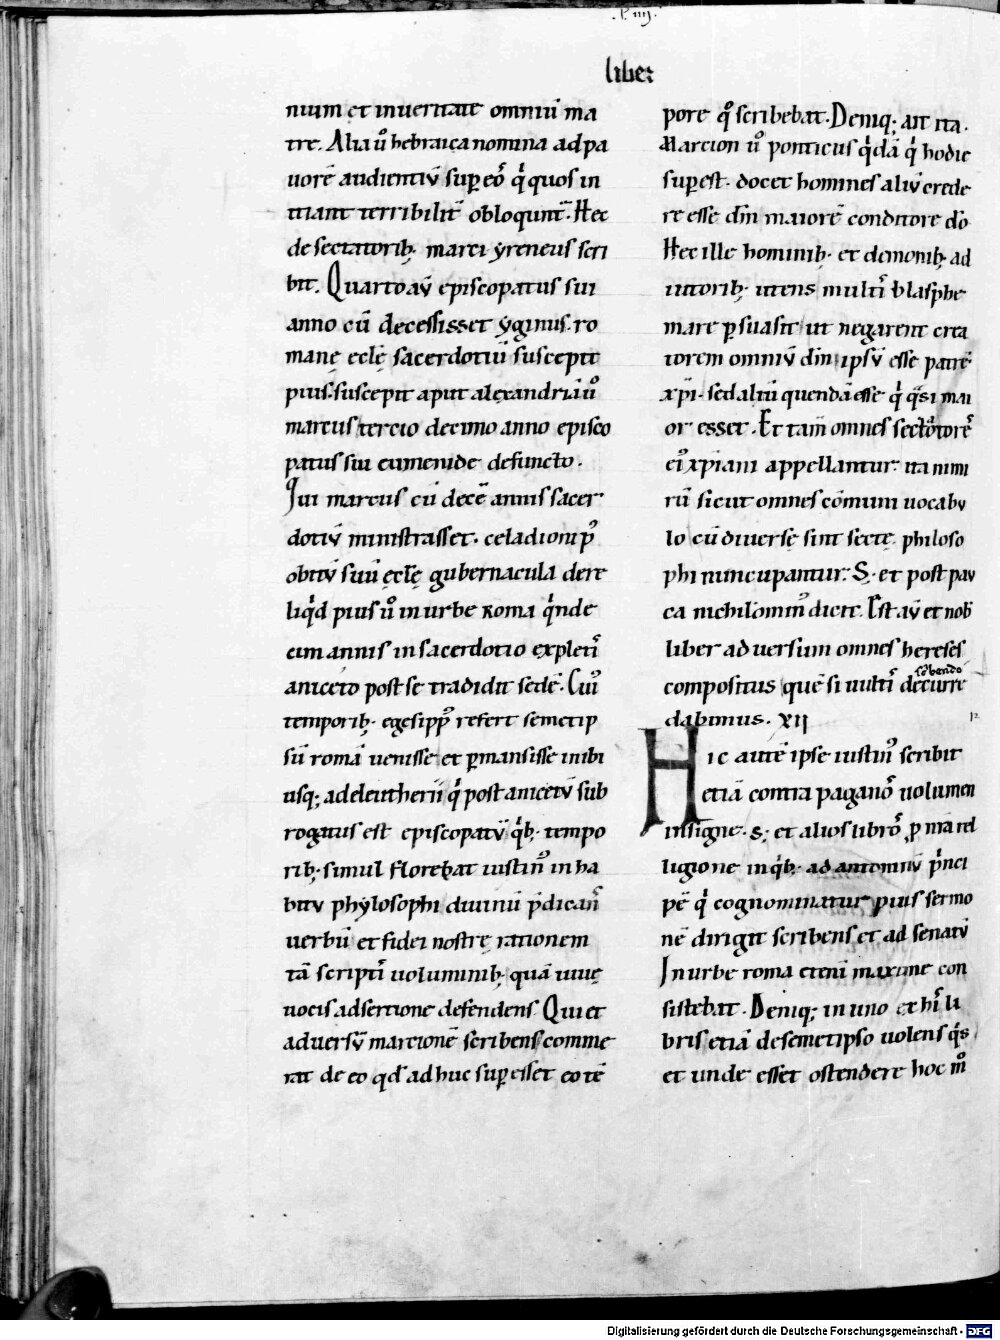 .P. iiij.
liber
nium et inueritate omniū ma
tre. Alia ū hebraica nomina ad pa
uorē audientiū super eoꝝ qͥ quos in
itiant terribilit̄ obloqunt̄. Hec
de sectatorib; marci yreneus scri
bit. Quarto aū episcopatus sui
anno cū decessisset yginus. ro
manę eclę sacerdotiū suscepit
pius. suscepit aput alexandriā ūo
marcus tercio decimo anno episco
patus sui eumenide defuncto.
Qui marcus cū decē annis sacer
dotiū ministrasset. celadioni p̄
obitū suū eclę gubernacula dere
liqͥd pius ūo in urbe roma qͥnde
cim annis in sacerdotio expletꝭ
aniceto post se tradidit sedē. Cui᾿
temporib; egesipp᾿ refert semetip
sū romā uenisse et p̄mansisse inibi
usq; ad eleutheriū qͥ post anicetū sub
rogatus est episcopatū qͥb; tempo
rib; simul florebat iustin᾿ in ha
bitu phylosophi diuinū p̄dicans
uerbū et fidei nostrę rationem
tā scriptꝭ uoluminib; quā uiuę
uocis adsertione defendens. Qui et
aduersū marcionē scribens comme
rat de eo qd̄ ad huc superesset eo tē
pore qo scribebat. Deniq; ait ita.
Marcion ūo ponticus qͥdā qͥ hodie
superest. docet homines aliū crede
re esse dm̄ maiorē conditore dō
Hec ille hominib; et demonib; ad
iutorib; utens multꝭ blasphe
mare p̄suasit ut negarent crea
torem omniū dm̄ ipsū esse patrē
xp̄i. sed aliū quendā esse qͥ qͣsi mai
or esset. Et tam̄ omnes sectatores
ei᾿ xp̄iani appellantur. ita nimi
rū sicut omnes cōmuni uocabu
lo cū diuersę sint sectę philoso
phi nuncupantur. S; et post pau
ca nichilomin᾿ dicit. Est aū et nob̄
liber aduersum omnes hereses
scͥbendo
compositus quē si uultꝭ decurre
dabimus. XII
12
Hic autē ipse iustin᾿ scribit
etiā contra paganoꝝ uolumen
insigne. s; et alios libros p̄ n̄ra rel
ligione in qͥb; ad antoniū pͥnci
pē qͥ cognominatur pius sermo
nē dirigit scribens et ad senatū
In urbe roma etenī maxime con
sistebat. Deniq; in uno ex hiꝭ li
bris etiā de semetipso uolens qͥs
et unde esset ostendere hoc mo